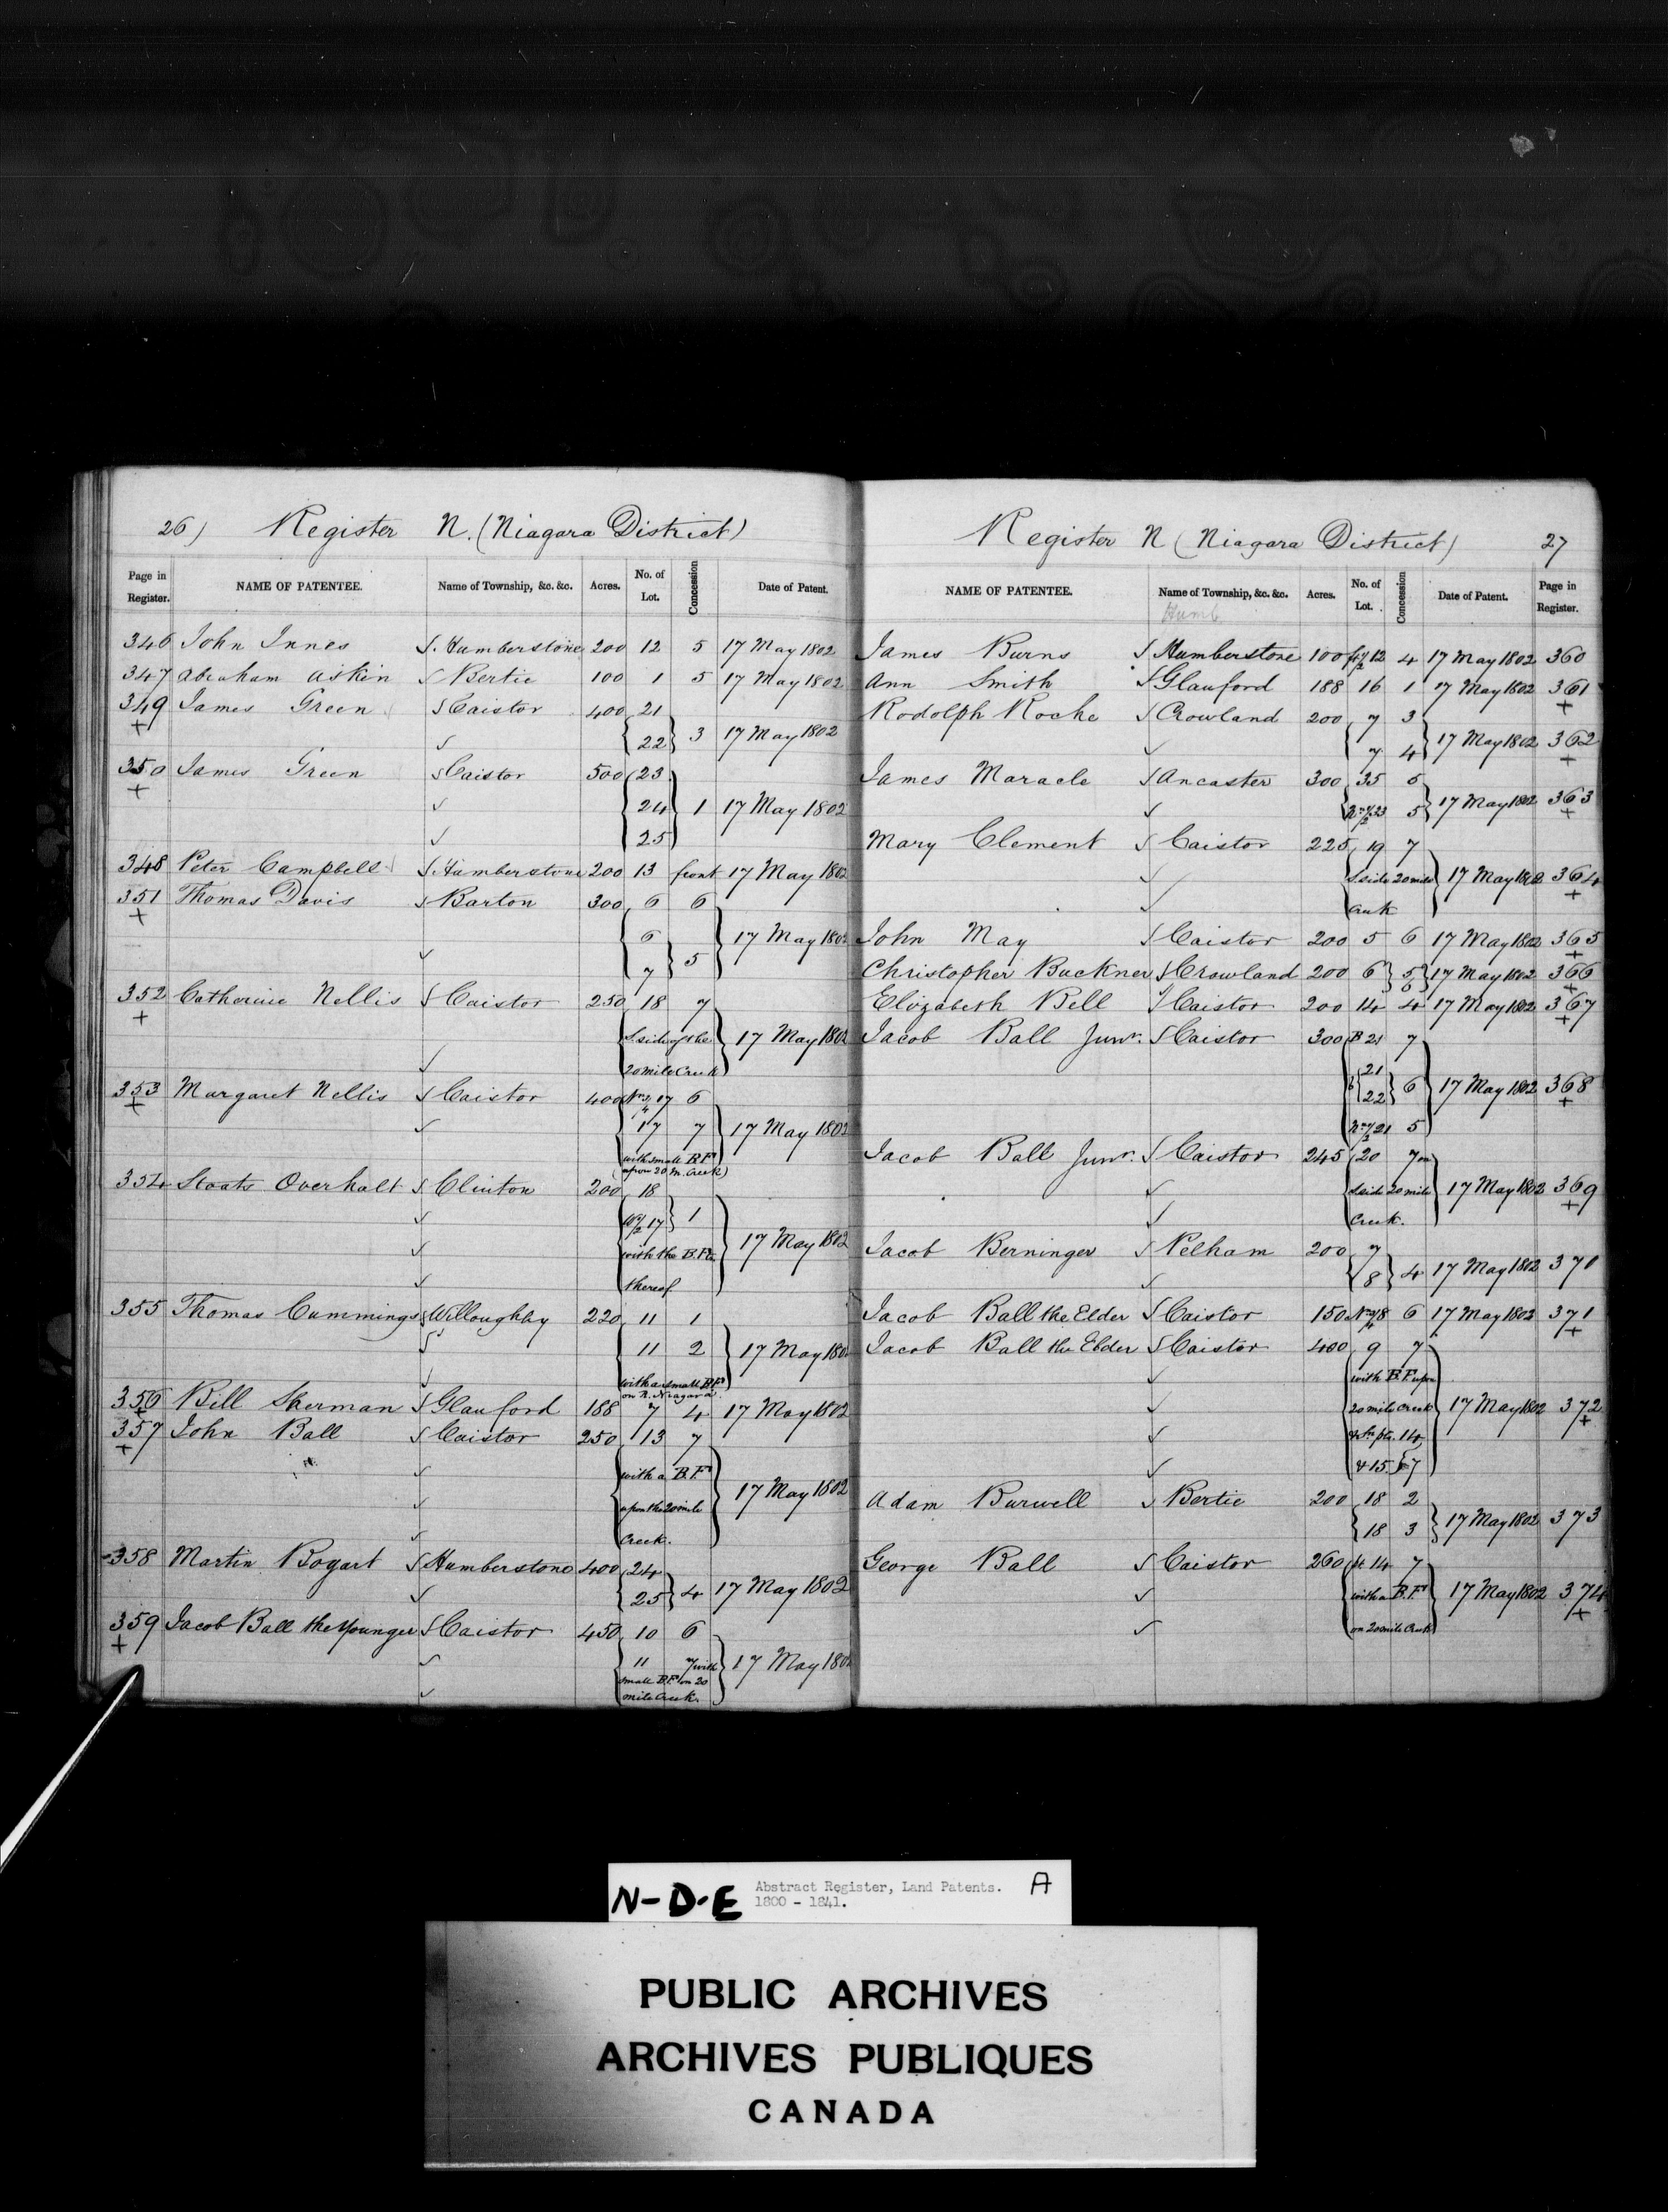 26) Register N. (Niagara District)
Page in Register. NAME OF PATENTEE. Name of Township, &c. &c. Acres. No. of Lot. Concession Date of Patent.
346 John Innes Humberstone 200 12 5 17 May 1802
347 Abraham Askin Bertie 100 1 5 17 May 1802
349 James Green Caistor 400 21
+ 22 3 17 May 1802
350 James Green Caistor 500 23
+ 24 1 17 May 1802
25
348 Peter Campbell Humberstone 200 13 front 17 May 1802
351 Thomas Davis Barton 300 6 6
+ 6 17 May 1802
7 5
352 Catherine Nellis Caistor 250 18 7
+ S. side of the 17 May 1802
20 mile Creek
353 Margaret Nellis Caistor 400 17 6
+ 17 7 17 May 1802
with small B.Ft
upon 20 M. Creek
354 Staats Overhalt Clinton 200 18
W½ 17 1
with the B.Fts 17 May 1802
thereof
355 Thomas Cummings Willoughby 220 11 1
11 2 17 May 1802
with a small B.Ft
on R. Niagara
356 Bill Sherman Glanford 188 7 4 17 May 1802
+
357 John Ball Caistor 250 13 7
+ with a B.Ft
upon the 20 mile 17 May 1802
Creek.
358 Martin Bogart Humberstone 400 24
25 4 17 May 1802
359 Jacob Ball the Younger Caistor 450 10 6
+ 11 7 with 17 May 1802
small B.Ft on 20
mile Creek.
Register N (Niagara District) 27
NAME OF PATENTEE. Name of Township, &c. &c. Acres. No. of Lot. Concession Date of Patent. Page in Register.
Humb
James Burns Humberstone 100 12 4 17 May 1802 360
Ann Smith Glanford 188 16 1 17 May 1802 361
+
Rodolph Roche Crowland 200 7 3
7 4 17 May 1802 362
+
James Maracle Ancaster 300 35 5
N½ 33 5 17 May 1802 363
+
Mary Clement Caistor 225 19 7
S. side 20 mile 17 May 1802 364
Creek +
John May Caistor 200 5 6 17 May 1802 365
+
Christopher Buckner Crowland 200 6 5 17 May 1802 366
6 +
Elizabeth Bell Caistor 200 14 4 17 May 1802 367
+
Jacob Ball Junr. Caistor 300 B 21 7
21
22 6 17 May 1802 368
+
N½ 21 5
Jacob Ball Junr. Caistor 245 20 7 on
S. side 20 mile 17 May 1802 369
Creek. +
Jacob Berninger Pelham 200 7
8 4 17 May 1802 370
Jacob Ball the Elder Caistor 150 8 6 17 May 1802 371
+
Jacob Ball the Elder Caistor 400 9 7
with B.F. upon
20 mile Creek 17 May 1802 372
+
& pts. 14
& 15 7
Adam Burwell Bertie 200 18 2
18 3 17 May 1802 373
George Ball Caistor 260 14 7
with a B.Ft 17 May 1802 374
on 20 mile Creek +
N-D-E Abstract Register, Land Patents. A
1800 - 1841.
PUBLIC ARCHIVES
ARCHIVES PUBLIQUES
CANADA